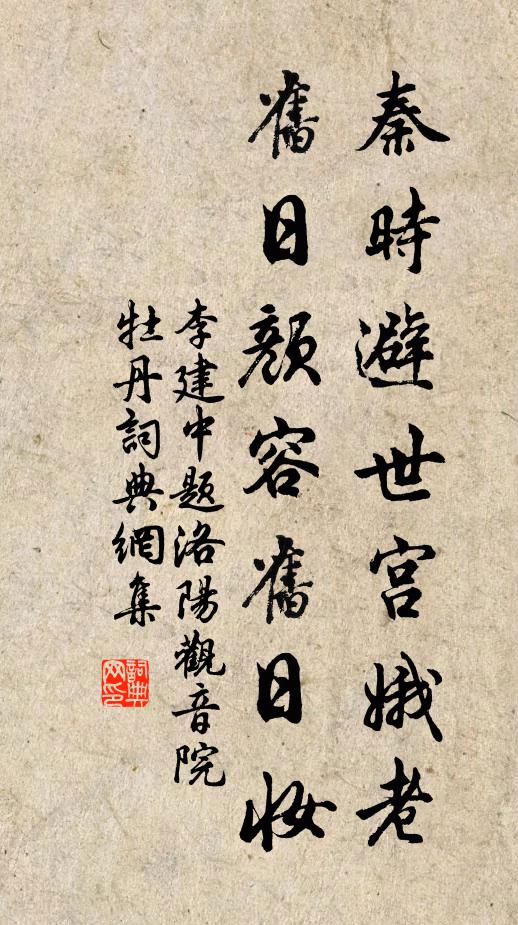 秦時避世宮娥老
舊日顏容舊日妝
李建中題洛陽觀音院
牡丹詞典網集
詞典网印